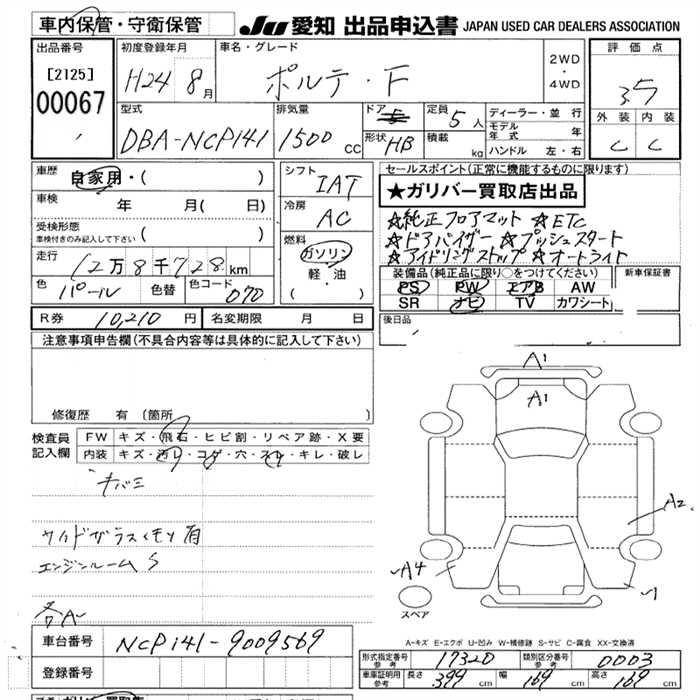 車内保管・守衛保管
JU 愛知 出品申込書 JAPAN USED CAR DEALERS ASSOCIATION
出品番号
[2125]
00067
初度登録年月
H24 8月
車名・グレード
ポルテ・F
2WD
・
4WD
評価点
3.5
外装 内装
C C
型式
DBA-NCP141
排気量
1500 cc
ドア 5
形状 HB
定員 5人
積載 kg
ディーラー・並行
モデル年式 年
ハンドル 左・右
車歴
自家用・( )
車検 年 月( 日)
受検形態
車検付きのみ記入して下さい ( )
走行
12万8千728km
色 パール 色替 色コード 070
シフト
IAT
冷房
AC
燃料
ガソリン
軽・油
( )
セールスポイント(正常に機能するものに限ります)
★ガリバー買取店出品
☆純正フロアマット ☆ETC
☆ドアバイザー ☆プッシュスタート
☆アイドリングストップ ☆オートライト
装備品(純正品に限り○をつけてください)
PS PW エアB AW
SR ナビ TV カワシート
新車保証書
後日品
R券 10,210円 名変期限 月 日
注意事項申告欄(不具合内容等は具体的に記入して下さい)
修復歴 有 (箇所 )
検査員
記入欄
FW キズ・飛石・ヒビ割・リペア跡・X要
内装 キズ・汚レ・コゲ・穴・スレ・キレ・破レ
サイドガラスくもり有
エンジンルームS
各A~
A1
A1
A2
A4
スペア
A-キズ E-エクボ U-凹み W-補修跡 S-サビ C-腐食 XX-交換済
車台番号 NCP141-9009569
登録番号
形式指定番号 参考 17320
類別区分番号 参考 0003
車庫証明用 参考 長さ 399cm 幅 169cm 高さ 169cm